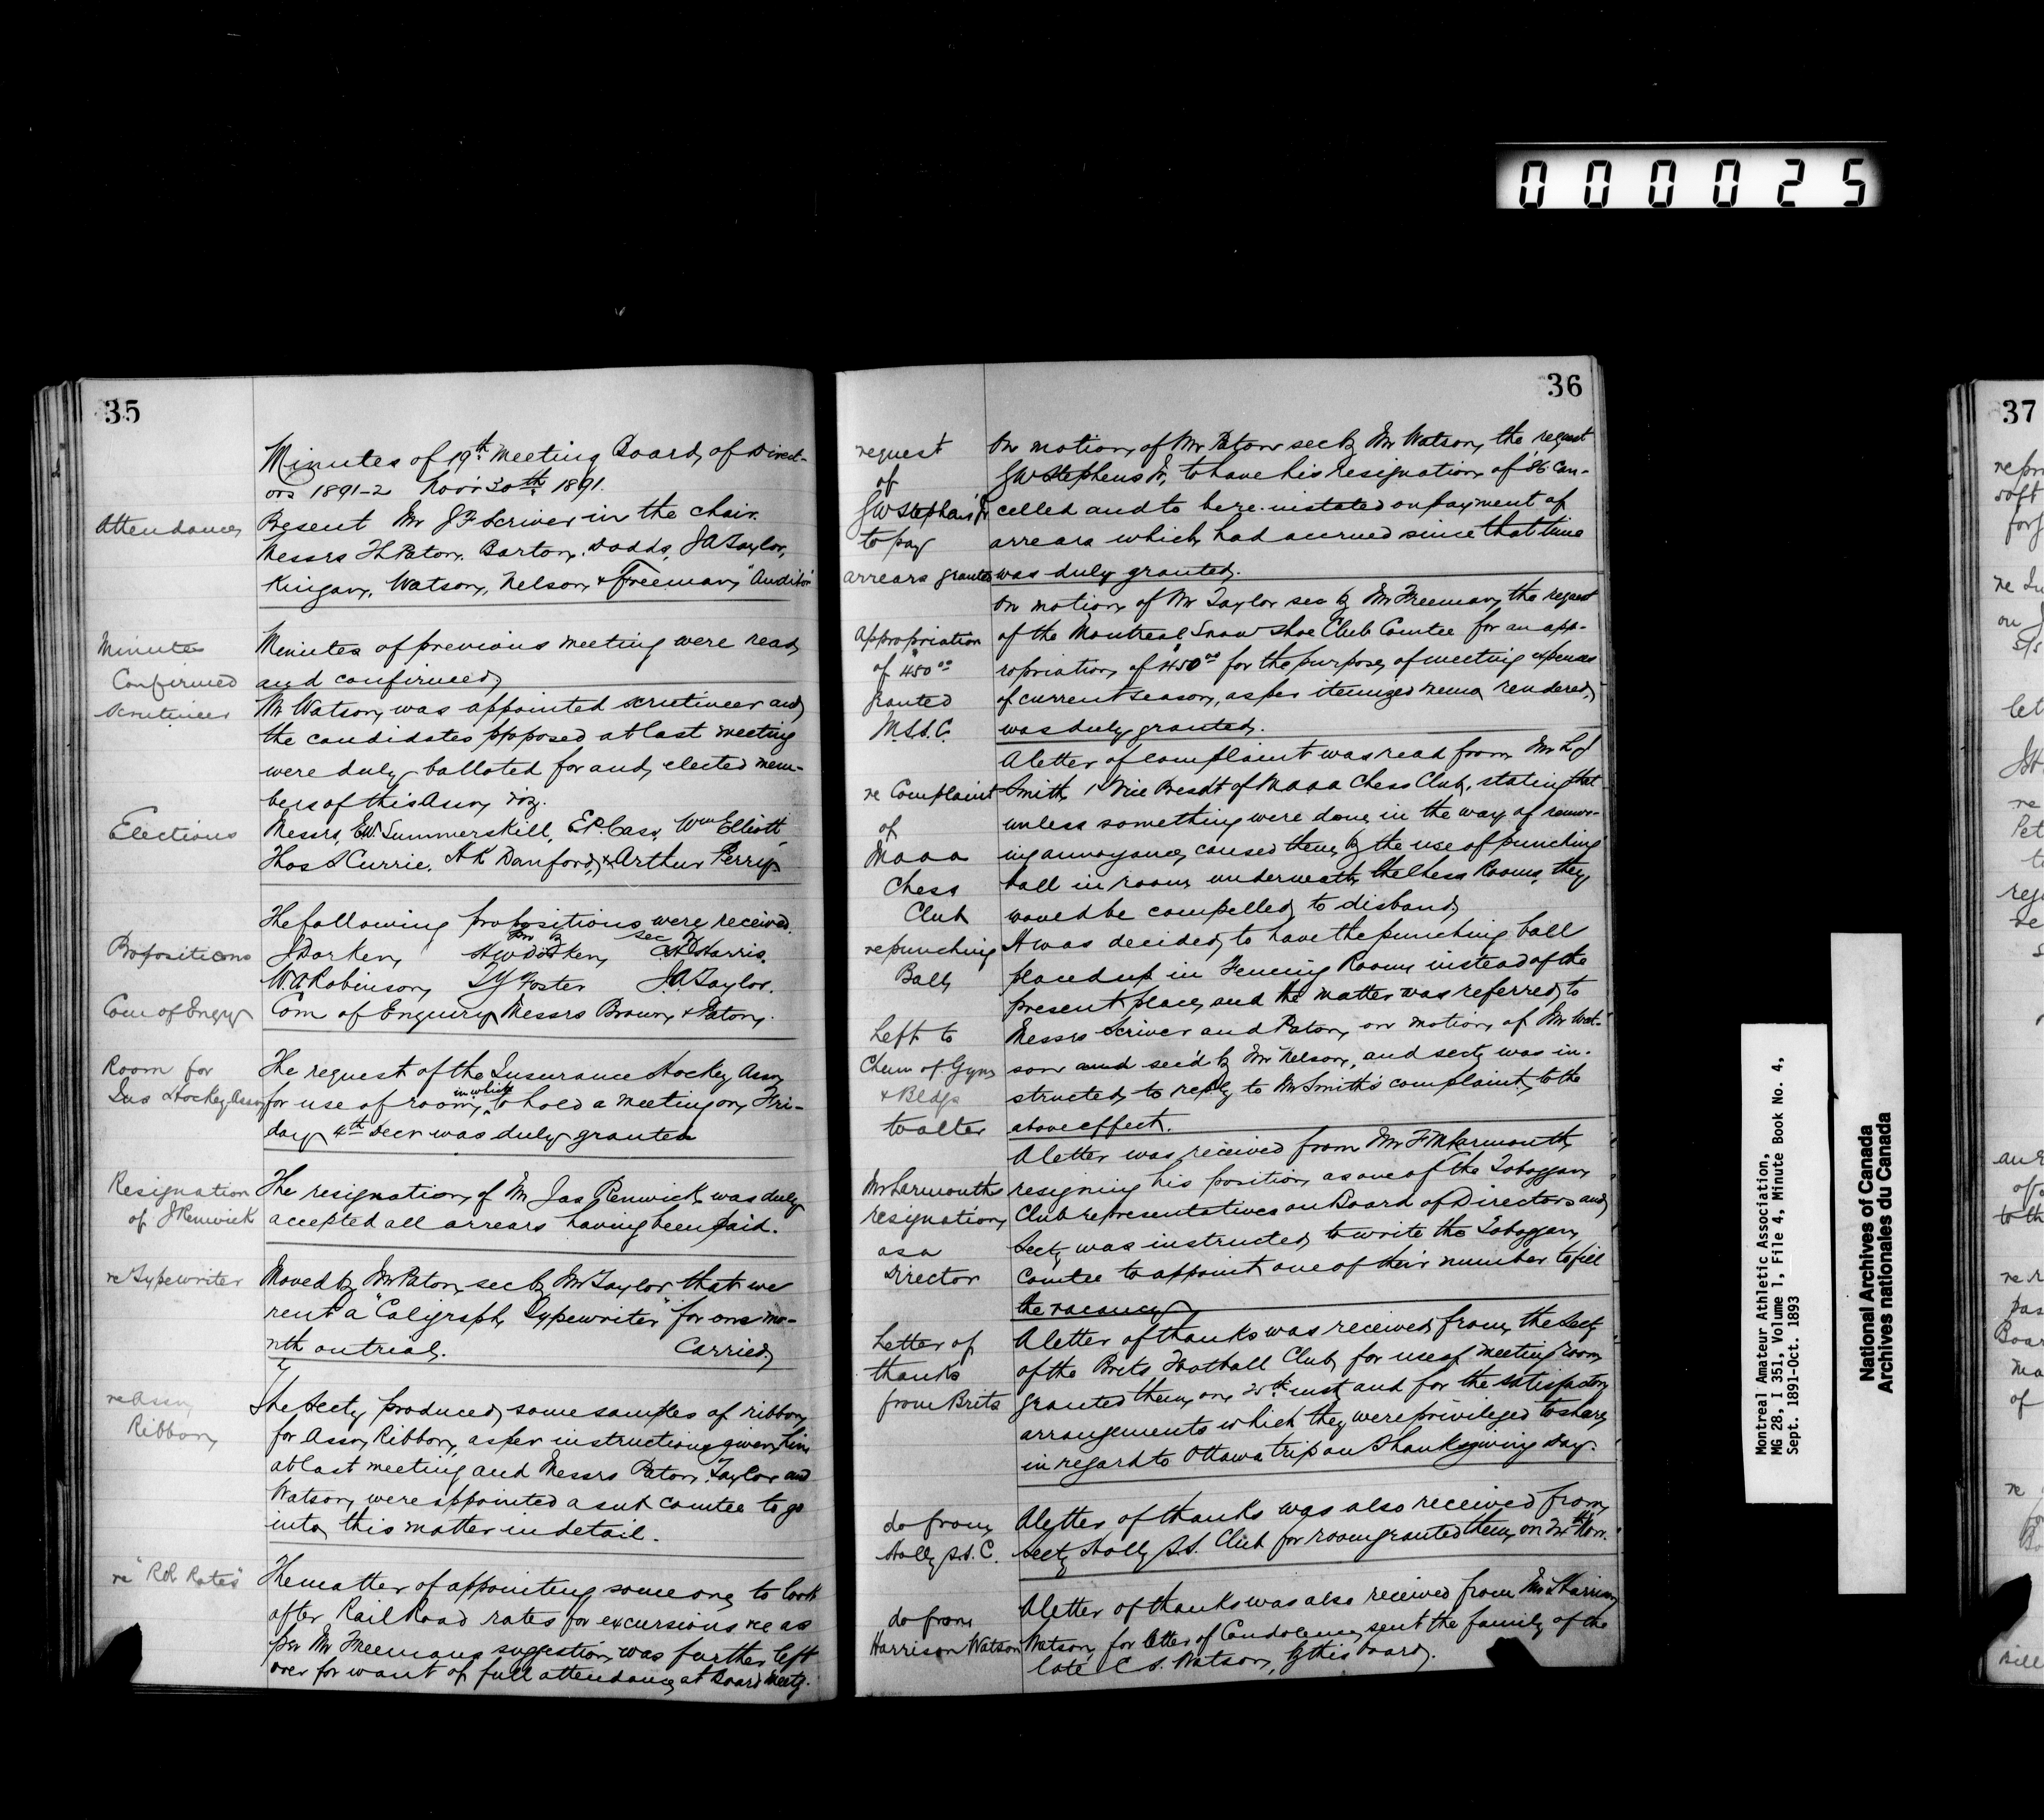 000025
35
Minutes of 19th meeting Board of Direct-
ors 1891-2 Nov'r 30th 1891.
Attendance
Present Mr J F Scriver in the chair.
Messrs T L Paton, Barton, Dodds, J A Taylor,
Kingan, Watson, Nelson, & Freeman, "Auditor"
Minutes
Confirmed
Minutes of previous meeting were read
and confirmed
Scrutineer
Mr Watson was appointed scrutineer and
the candidates proposed at last meeting
were duly balloted for and elected mem-
bers of this Assn viz.
Elections
Messrs, E W Summerskill, E P. Cass, Wm Elliott,
Thos S Currie, H K Danford, & Arthur Perry.
The following propositions were received.
pro by sec by
Propositions
J Dorken, H W Dorken, Harris.
W. A Robinson, Foster J. A. Taylor.
Com of Enqry
Com of Enquiry Messrs Brown & Paton.
Room for
Ins Hockey Assn
The request of the Insurance Hockey Assn
for use of room in which to hold a meeting on Fri-
day 4th Decr was duly granted
Resignation
of J Renwick
The resignation of Mr Jas Renwick was duly
accepted all arrears having been paid.
re Typewriter
Moved by Mr Paton sec by Mr Taylor that we
rent a "Caligraph Typewriter" for one mo-
nth on trial. Carried
re Assn
Ribbon
The Secty produced some samples of ribbon
for Assn Ribbon, as per instructions given him
at last meeting and Messrs Paton, Taylor and
Watson, were appointed a sub comtee to go
into this matter in detail.
re "R R Rates"
The matter of appointing some one to look
after Rail Road rates for excursions &c as
per Mr Freemans suggestion was further left
over for want of full attendance at Board meetg.
36
request
of
G W Stephens Jr
to pay
arrears granted
On motion of Mr Paton sec by Mr Watson, the request
G W Stephens Jr, to have his resignation of '86 can-
celled and to be re-instated on payment of
arrears which had accrued since that time
was duly granted.
Appropriation
of $450.00
granted
M.S.S.C.
On motion of Mr Taylor sec by Mr Freeman, the request
of the Montreal Snow Shoe Club Comtee for an app-
ropriation of $450.00 for the purpose of meeting expenses
of current season, as per itemized memo rendered,
was duly granted.
re Complaint
of
M a a a
Chess
Club
re punching
Ball
A letter of complaint was read from Mr
Smith, 1st Vice Presdt of M a a a Chess Club, stating that
unless something were done in the way of remov-
ing annoyance, caused them by the use of punching
ball in room underneath the Chess Rooms, they
would be compelled to disband.
It was decided to have the punching ball
placed up in Fencing Room instead of the
present place, and the matter was referred to
Left to
Chem of Gym
& Bldgs
to alter
Messrs Scriver and Paton, on motion of Mr Wat-
son and sec'd by Mr Nelson, and secty was in-
structed to reply to Mr Smith's complaint, to the
above effect.
Mr Larmouths
resignation
as a
Director
A letter was received from Mr F M Larmouth,
resigning his position as one of the Toboggan
Club representatives on Board of Directors and
Secty was instructed to write the Toboggan
Comtee to appoint one of their number to fill
the vacancy
Letter of
thanks
from Brits
A letter of thanks was received from the Secty
of the Brits Football Club for use of meeting room
granted them on 25th inst, and for the satisfactory
arrangements which they were privileged to share
in regard to Ottawa trip on Thanksgiving day.
do from
Holly S.S. C.
A letter of thanks was also received from
Secty Holly S.S. Club for room granted them on Nov.
do from
Harrison Watson
A letter of thanks was also received from Mr Harrison
Watson, for letter of Condolence, sent the family of the
late C S. Watson, by this board.
37
Montreal Amateur Athletic Association,
MG 28, I 351, Volume 1, File 4, Minute Book No. 4,
Sept. 1891-Oct. 1893
National Archives of Canada
Archives nationales du Canada